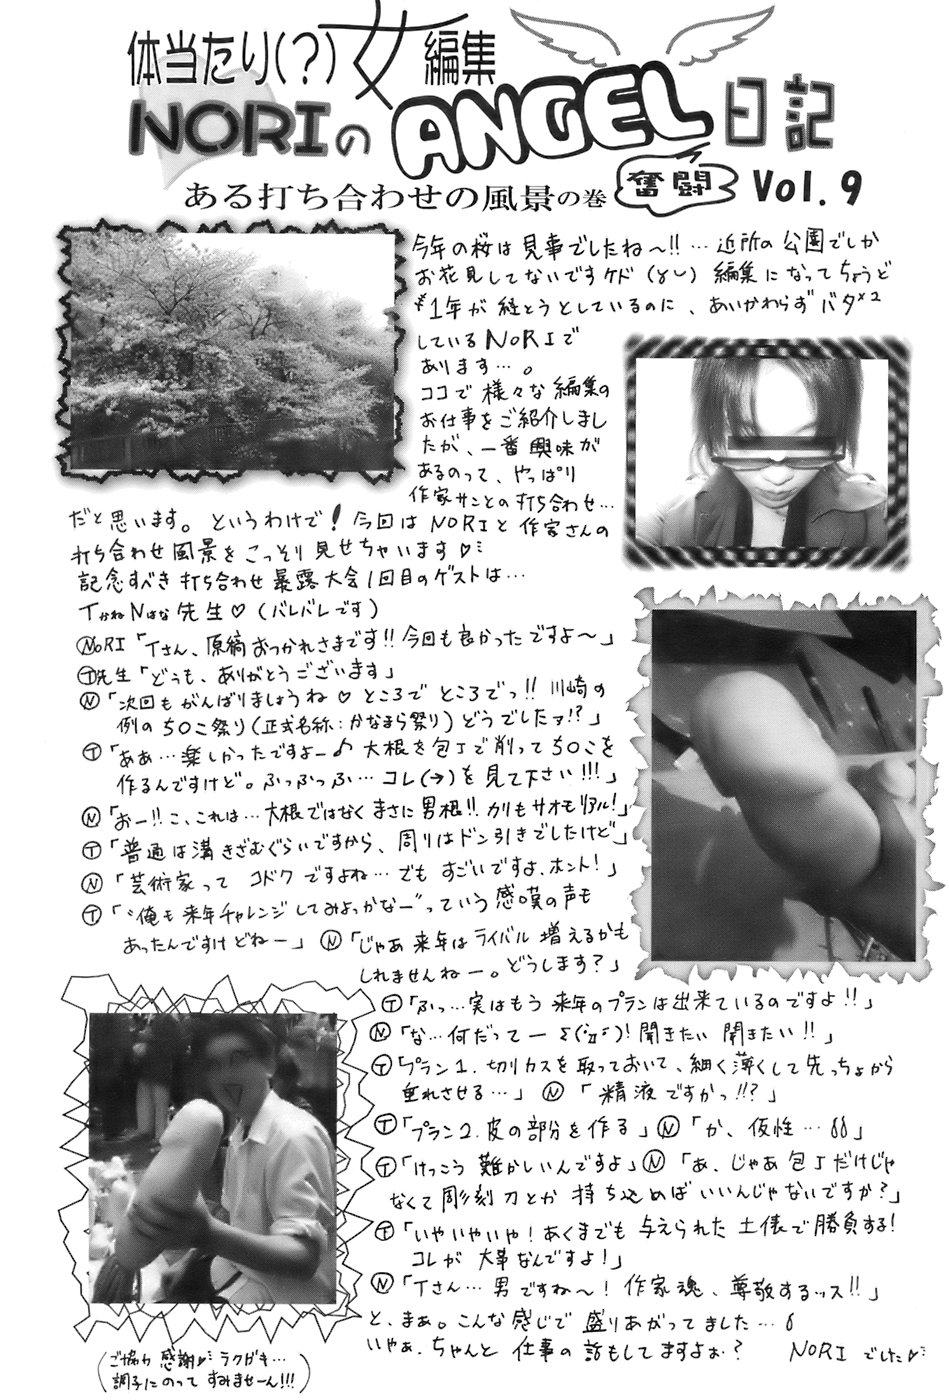 体当たり(?)女編集
NORIのANGEL日記
ある打ち合わせの風景の巻 奮闘 Vol.9
今年の桜は見事でしたね〜!!…近所の公園でしか
お花見してないですケド 編集になってちょうど
1年が経とうとしているのに、あいかわらずバタ×2
しているNORIで
あります…。
ココで様々な編集の
お仕事をご紹介しまし
たが、一番興味が
あるのって、やっぱり
作家サンとの打ち合わせ…
だと思います。というわけで!今回はNORIと作家さんの
打ち合わせ風景をこっそり見せちゃいます♡
記念すべき打ち合わせ暴露大会1回目のゲストは…
TかねNはな先生♡(バレバレです)
NORI「Tさん、原稿おつかれさまです!!今回も良かったですよ〜」
T先生「どうも、ありがとうございます」
Ⓝ「次回もがんばりましょうね♡ところでところでっ!!川崎の
例のちOこ祭り(正式名称:かなまら祭り)どうでしたァ!?」
Ⓣ「ああ…楽しかったですよー♪大根を包丁で削ってちOこを
作るんですけど。ふっふっふ…コレ(→)を見て下さい!!!」
Ⓝ「おー!!こ、これは…大根ではなくまさに男根!!カリもサオもリアル!」
Ⓣ「普通は溝きざむぐらいですから、周りはドン引きでしたけど」
Ⓝ「芸術家ってコドクですよね…でもすごいですよ、ホント!」
Ⓣ「"俺も来年チャレンジしてみよっかなー"っていう感嘆の声も
あったんですけどねー」Ⓝ「じゃあ来年はライバル増えるかも
しれませんねー。どうします?」
Ⓣ「ふっ…実はもう来年のプランは出来ているのですよ!!」
Ⓝ「な…何だってー Σ(ﾟДﾟ)!聞きたい聞きたい!!」
Ⓣ「プラン1.切りカスを取っておいて、細く薄くして先っちょから
垂れさせる…」Ⓝ「精液ですかっ!!?」
Ⓣ「プラン2.皮の部分を作る」Ⓝ「か、仮性…」
Ⓣ「けっこう難かしいんですよ」Ⓝ「あ、じゃあ包丁だけじゃ
なくて彫刻刀とか持ち込めばいいんじゃないですか?」
Ⓣ「いやいやいや!あくまでも与えられた土俵で勝負する!
コレが大事なんですよ!」
Ⓝ「Tさん…男ですね〜!作家魂、尊敬するッス!!」
と、まぁ。こんな感じで盛りあがってました…
いやぁ、ちゃんと仕事の話もしてますよぉ? NORIでした♡
(ご協力感謝♡ラクガキ…
調子にのってすみませーん!!!)